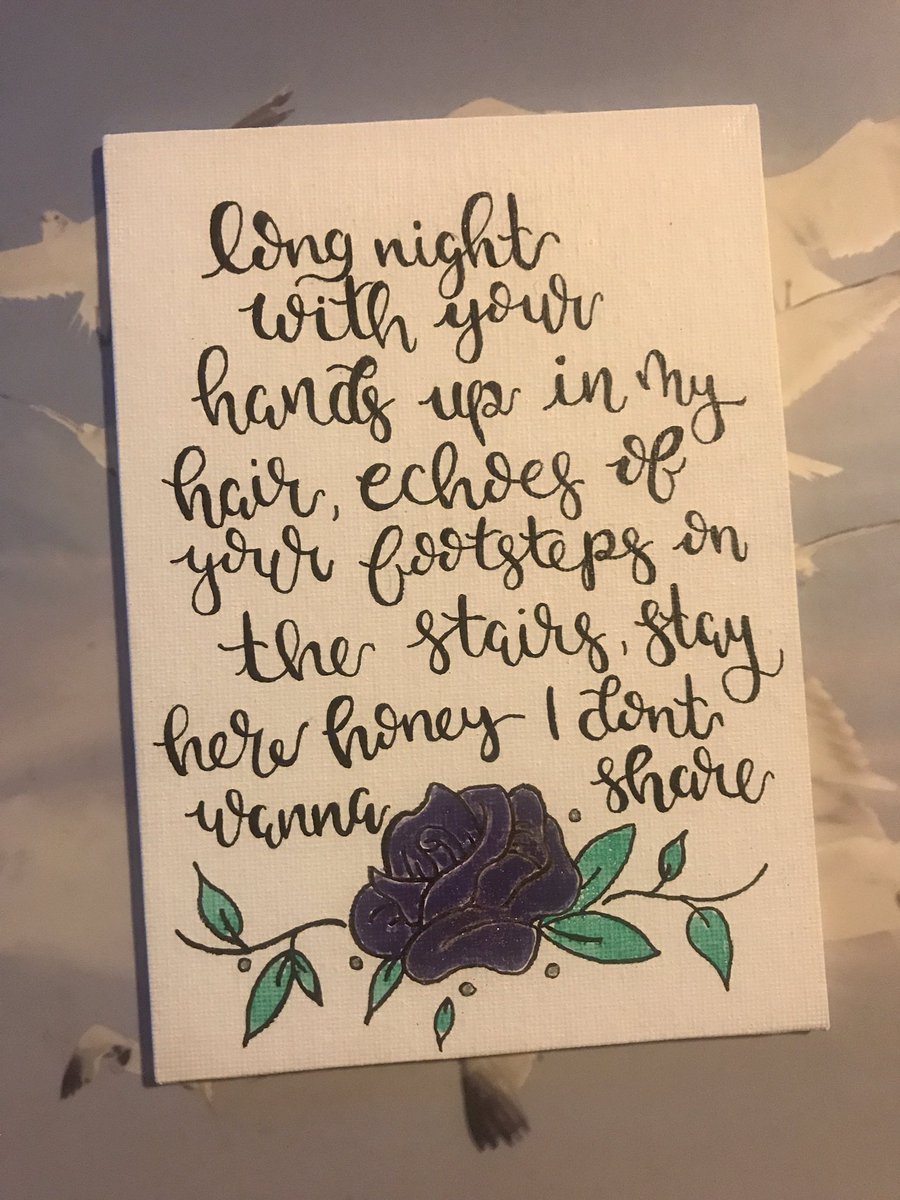 long night
with your
hands up in my
hair, echoes of
your footsteps on
the stairs, stay
here honey I dont
wanna share